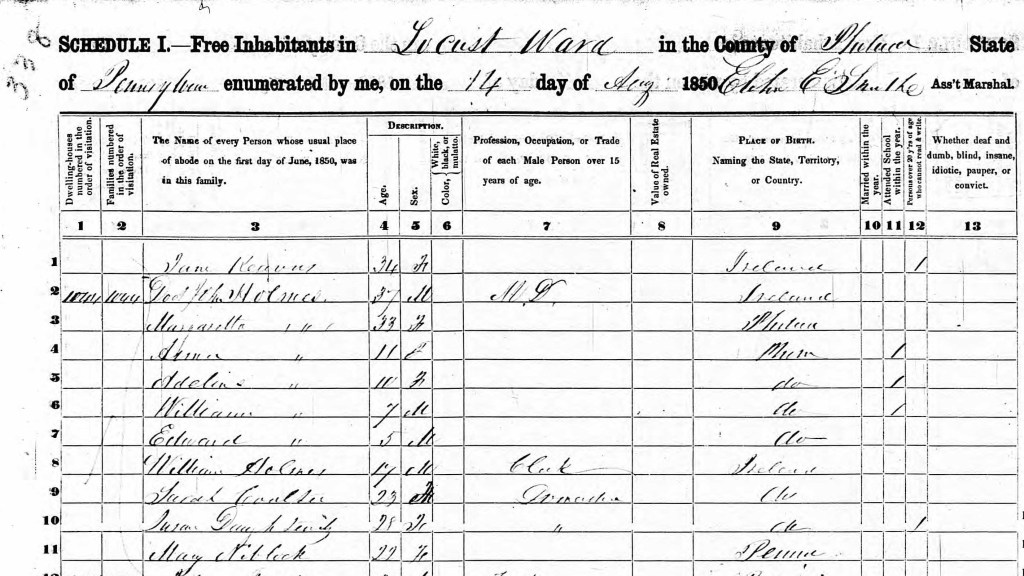 338
SCHEDULE I.—Free Inhabitants in Locust Ward in the County of Philada State
of Pennsylvan enumerated by me, on the 14 day of Aug 1850. E Ass't Marshal.
Dwelling-houses numbered in the order of visitation.
Families numbered in the order of visitation.
The Name of every Person whose usual place of abode on the first day of June, 1850, was in this family.
DESCRIPTION.
Age.
Sex.
Color, { White, black, or mulatto.
Profession, Occupation, or Trade of each Male Person over 15 years of age.
Value of Real Estate owned.
PLACE OF BIRTH. Naming the State, Territory, or Country.
Married within the year.
Attended School within the year.
Persons over 20 y'rs of age who cannot read & write.
Whether deaf and dumb, blind, insane, idiotic, pauper, or convict.
1 2 3 4 5 6 7 8 9 10 11 12 13
1 Jane 34 F Ireland 1
2 John Holmes 37 M M.D. Ireland
3 Margaretta " " 33 F Philada
4 Anna " 11 F Penn 1
5 Adeline " 10 F do 1
6 William " 7 M do 1
7 Edward " 5 M do
8 William Holmes 17 M Clerk Ireland
9 Sarah Coulter 23 F Domestic do
10 Susan 28 F " do 1
11 May Niblock 22 F Penna